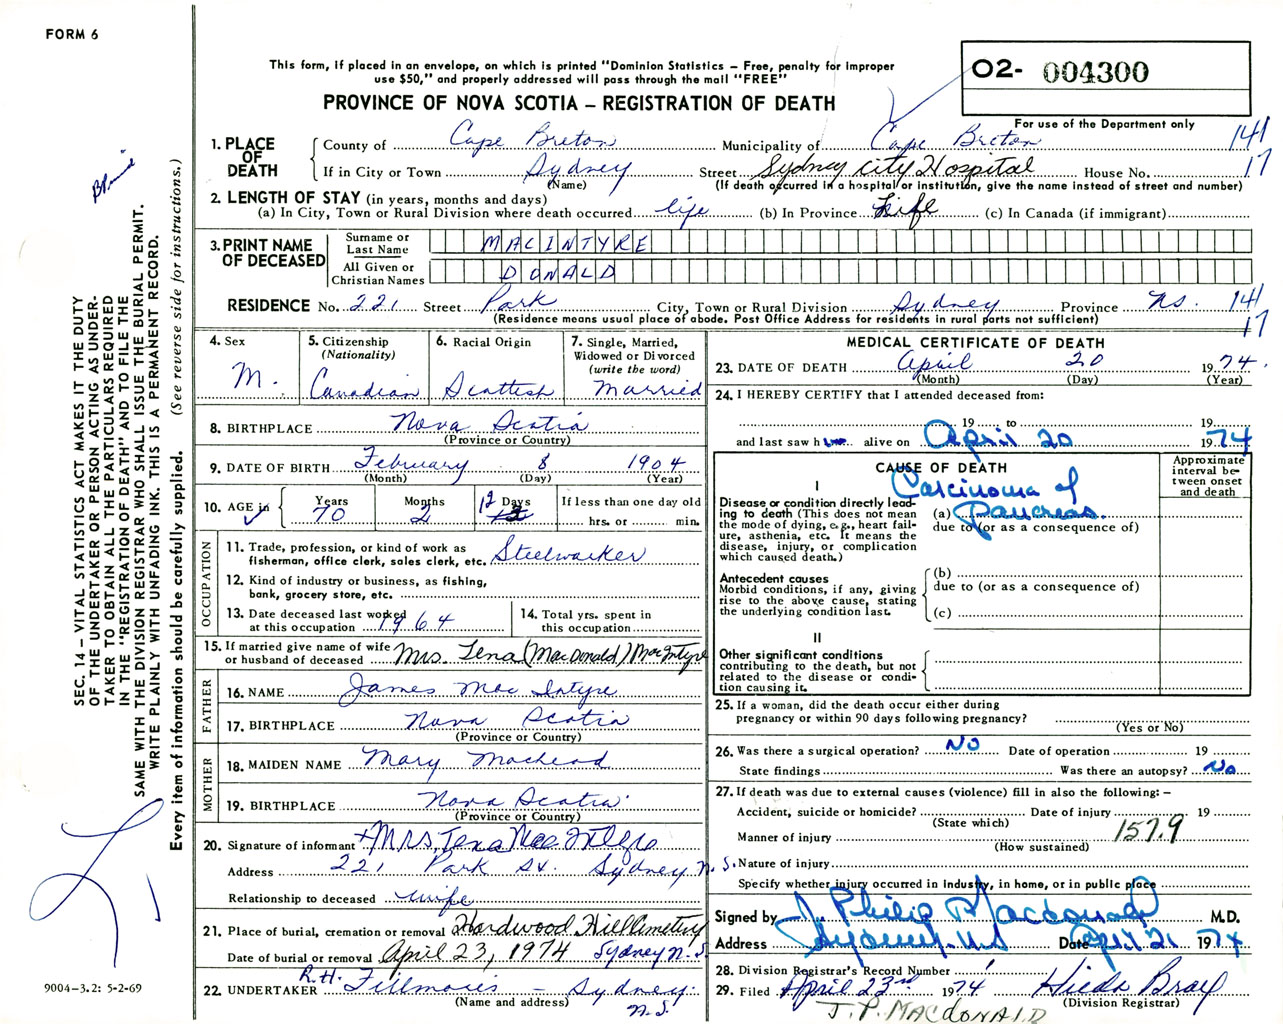 FORM 6
This form, if placed in an envelope, on which is printed "Dominion Statistics – Free, penalty for improper
use $50," and properly addressed will pass through the mail "FREE"
PROVINCE OF NOVA SCOTIA – REGISTRATION OF DEATH
O2- 004300
For use of the Department only
1. PLACE OF DEATH
County of Cape Breton Municipality of Cape Breton 141
If in City or Town Sydney Street Sydney City Hospital House No. 17
(Name) (If death occurred in a hospital or institution, give the name instead of street and number)
2. LENGTH OF STAY (in years, months and days)
(a) In City, Town or Rural Division where death occurred life (b) In Province Life (c) In Canada (if immigrant)
3. PRINT NAME OF DECEASED
Surname or Last Name MACINTYRE
All Given or Christian Names DONALD
RESIDENCE No. 221 Street Park City, Town or Rural Division Sydney Province N.S. 141
(Residence means usual place of abode. Post Office Address for residents in rural parts not sufficient) 17
4. Sex M.
5. Citizenship (Nationality) Canadian
6. Racial Origin Scottish
7. Single, Married, Widowed or Divorced (write the word) Married
8. BIRTHPLACE Nova Scotia
(Province or Country)
9. DATE OF BIRTH February 8 1904
(Month) (Day) (Year)
10. AGE in Years 70 Months 2 Days 12 If less than one day old hrs. or min.
OCCUPATION
11. Trade, profession, or kind of work as
fisherman, office clerk, sales clerk, etc. Steelworker
12. Kind of industry or business, as fishing,
bank, grocery store, etc.
13. Date deceased last worked
at this occupation 1964
14. Total yrs. spent in
this occupation
15. If married give name of wife
or husband of deceased Mrs. Tena (MacDonald) MacIntyre
FATHER
16. NAME James MacIntyre
17. BIRTHPLACE Nova Scotia
(Province or Country)
MOTHER
18. MAIDEN NAME Mary
19. BIRTHPLACE Nova Scotia
(Province or Country)
20. Signature of informant + Mrs. Tena MacIntyre
Address 221 Park St. Sydney N.S.
Relationship to deceased wife
21. Place of burial, cremation or removal Hardwood Hill Cemetery
Date of burial or removal April 23, 1974 Sydney N.S.
22. UNDERTAKER R.H. Fillmores – Sydney N.S.
(Name and address)
MEDICAL CERTIFICATE OF DEATH
23. DATE OF DEATH April 20 1974
(Month) (Day) (Year)
24. I HEREBY CERTIFY that I attended deceased from:
19 to 19
and last saw him alive on April 20 1974
CAUSE OF DEATH
Approximate interval between onset and death
I
Disease or condition directly leading to death (This does not mean the mode of dying, e.g., heart failure, asthenia, etc. It means the disease, injury, or complication which caused death.)
(a) Carcinoma of Pancreas
due to (or as a consequence of)
Antecedent causes
Morbid conditions, if any, giving rise to the above cause, stating the underlying condition last.
(b)
due to (or as a consequence of)
(c)
II
Other significant conditions
contributing to the death, but not related to the disease or condition causing it.
25. If a woman, did the death occur either during
pregnancy or within 90 days following pregnancy?
(Yes or No)
26. Was there a surgical operation? No Date of operation 19
State findings Was there an autopsy? No
27. If death was due to external causes (violence) fill in also the following: –
Accident, suicide or homicide? Date of injury 19
(State which)
Manner of injury 157.9
(How sustained)
Nature of injury
Specify whether injury occurred in Industry, in home, or in public place
Signed by J. Philip Macdonald M.D.
Address Sydney N.S Date April 21 1974
28. Division Registrar's Record Number
29. Filed April 23rd 1974 Hilda Bray
(Division Registrar)
J. P. MACDONALD
SEC. 14 – VITAL STATISTICS ACT MAKES IT THE DUTY
OF THE UNDERTAKER OR PERSON ACTING AS UNDER-
TAKER TO OBTAIN ALL THE PARTICULARS REQUIRED
IN THE "REGISTRATION OF DEATH" AND TO FILE THE
SAME WITH THE DIVISION REGISTRAR WHO SHALL ISSUE THE BURIAL PERMIT.
WRITE PLAINLY WITH UNFADING INK. THIS IS A PERMANENT RECORD.
Every item of information should be carefully supplied. (See reverse side for instructions.)
9004-3.2: 5-2-69